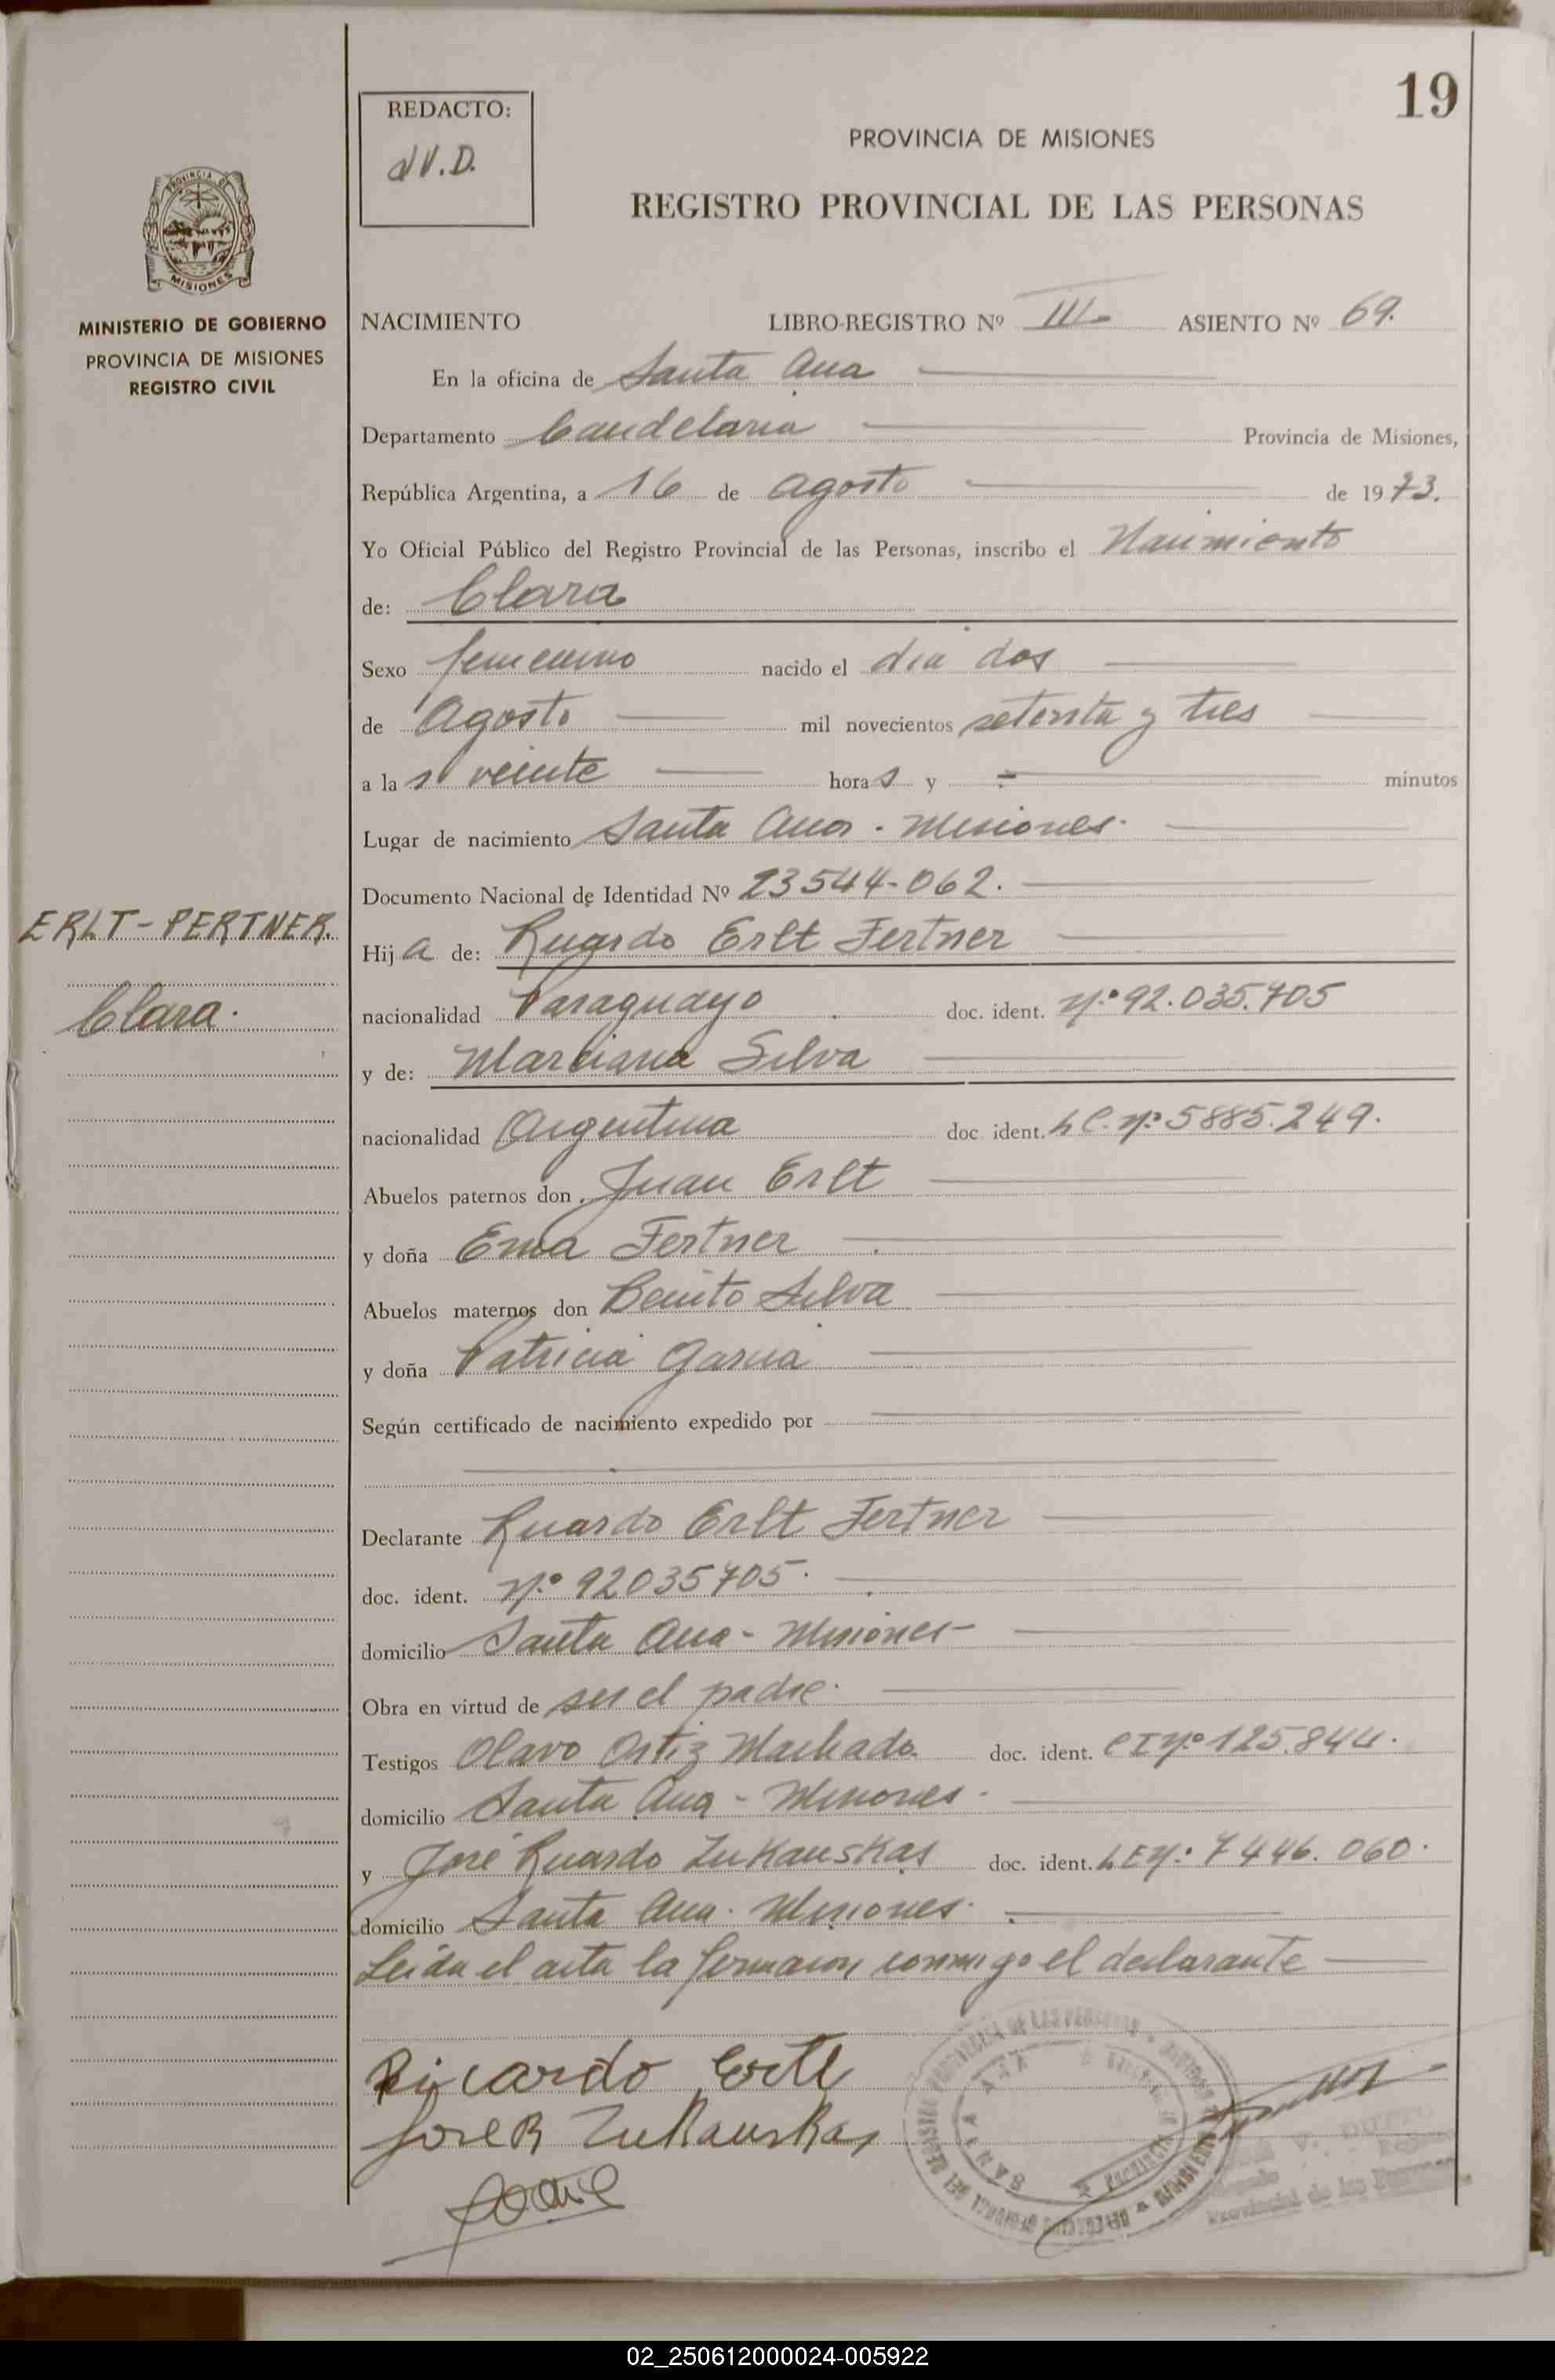 19
REDACTO:
V.D.
PROVINCIA DE MISIONES
REGISTRO PROVINCIAL DE LAS PERSONAS
PROVINCIA DE
MISIONES
MINISTERIO DE GOBIERNO
PROVINCIA DE MISIONES
REGISTRO CIVIL
NACIMIENTO LIBRO-REGISTRO Nº III ASIENTO Nº 69.
En la oficina de Santa Ana
Departamento Candelaria Provincia de Misiones,
República Argentina, a 16 de agosto de 1973.
Yo Oficial Público del Registro Provincial de las Personas, inscribo el Nacimiento
de: Clara
Sexo femenino nacido el dia dos
de Agosto mil novecientos setenta y tres
a la s veinte hora s y minutos
Lugar de nacimiento Santa Ana - Misiones.
Documento Nacional de Identidad Nº 23544-062.
ERLT-PERTNER.
Hij a de: Ricardo Erlt Fertner
Clara.
nacionalidad Paraguayo doc. ident. Nº 92.035.705
y de: Marciana Silva
nacionalidad Argentina doc ident. LC. Nº 5885.249.
Abuelos paternos don Juan Erlt
y doña Ema Fertner
Abuelos maternos don Benito Silva
y doña Patricia Garcia
Según certificado de nacimiento expedido por
Declarante Ricardo Erlt Fertner
doc. ident. Nº 92035705.
domicilio Santa Ana - Misiones -
Obra en virtud de ser el padre.
Testigos Olavo Ortiz Machado. doc. ident. CI Nº 125.844.
domicilio Santa Ana - Misiones.
y José Ricardo Zukauskas doc. ident. LE Nº 7446.060.
domicilio Santa Ana. Misiones.
Leida el acta la firmaron conmigo el declarante
Ricardo Erlt
Jose R Zukauskas
SANTA ANA
Provincial de las Personas
02_250612000024-005922